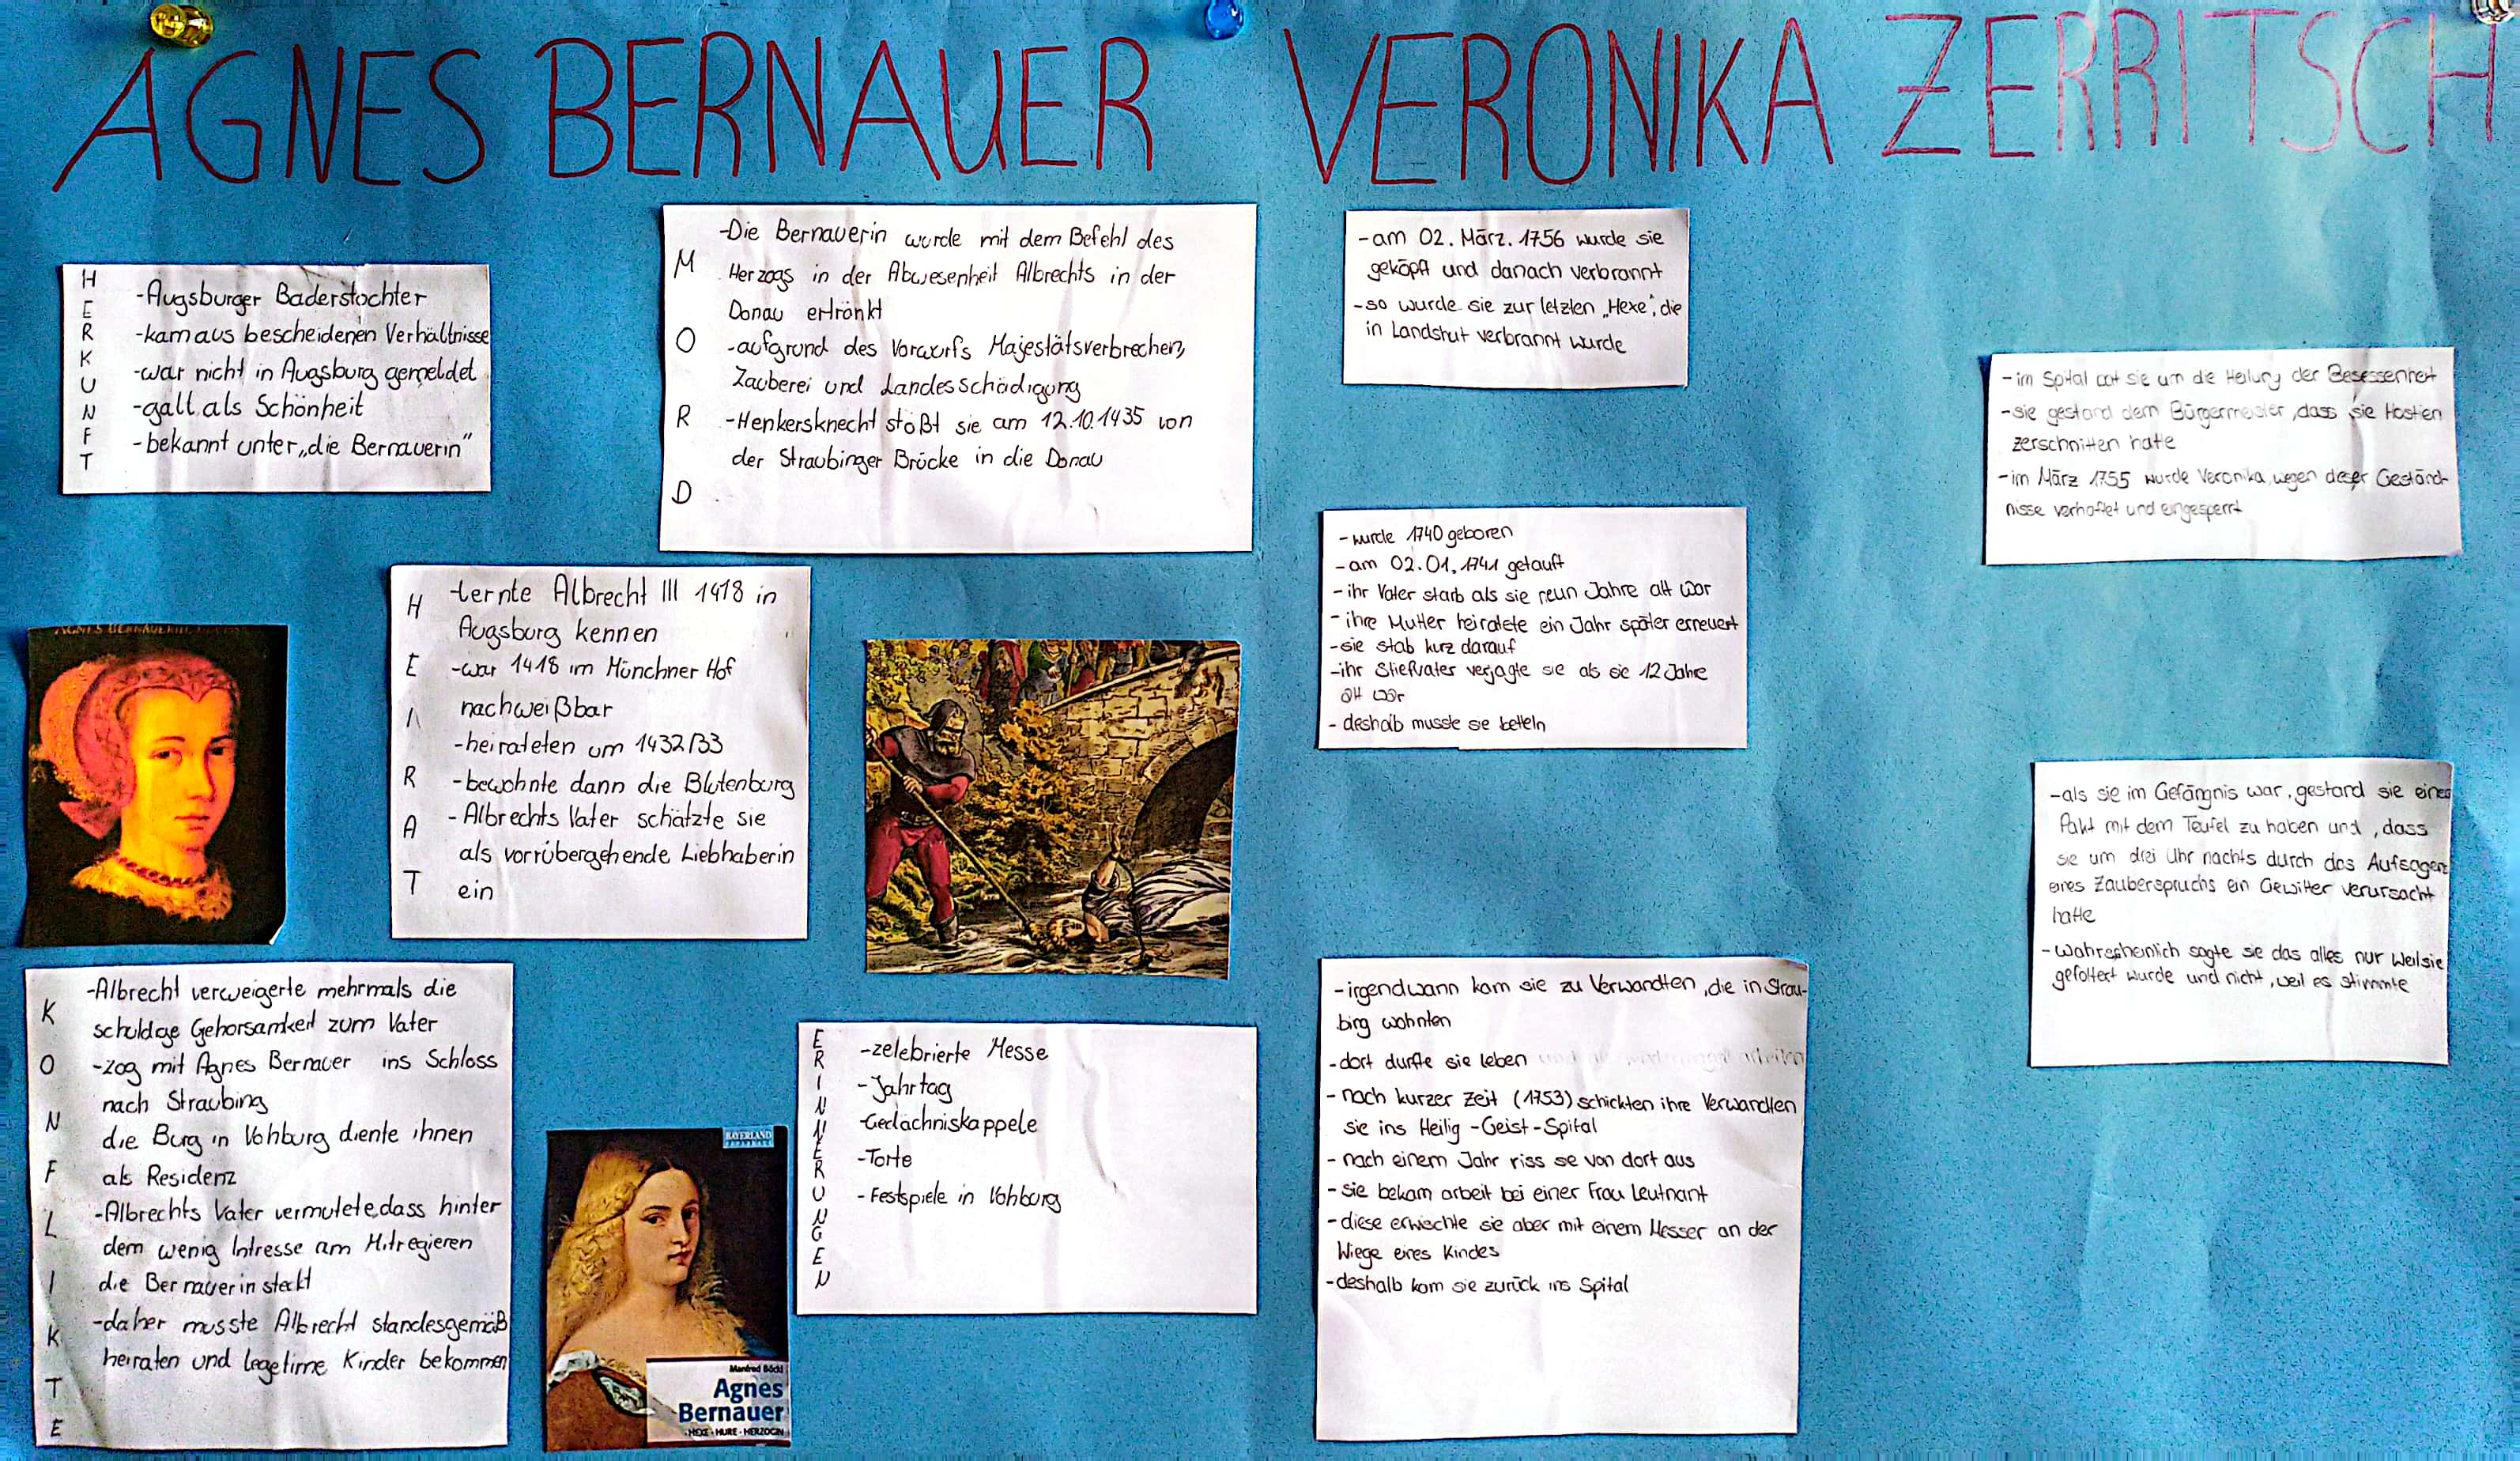 AGNES BERNAUER
VERONIKA ZERRITSCH
HERKUNFT
-Augsburger Baderstochter
-kam aus bescheidenen Verhältnisse
-war nicht in Augsburg gemeldet
-galt als Schönheit
-bekannt unter „die Bernauerin"
MORD
-Die Bernauerin wurde mit dem Befehl des
Herzogs in der Abwesenheit Albrechts in der
Donau ertränkt
-aufgrund des Vorwurfs Majestätsverbrechen,
Zauberei und Landesschädigung
-Henkersknecht stößt sie am 12.10.1435 von
der Straubinger Brücke in die Donau
HEIRAT
-lernte Albrecht III 1418 in
Augsburg kennen
-war 1418 im Münchner Hof
nachweißbar
-heirateten um 1432/33
-bewohnte dann die Blutenburg
-Albrechts Vater schätzte sie
als vorrübergehende Liebhaberin
ein
KONFLIKTE
-Albrecht verweigerte mehrmals die
schuldige Gehorsamkeit zum Vater
-zog mit Agnes Bernauer ins Schloss
nach Straubing
die Burg in Vohburg diente ihnen
als Residenz
-Albrechts Vater vermutete,dass hinter
dem wenig Intresse am Mitregieren
die Bernauerin steckt
-daher musste Albrecht standesgemäß
heiraten und legetime Kinder bekommen
BAYERLAND
Manfred Böckl
Agnes
Bernauer
·HEXE · HURE · HERZOGIN
ERINNERUNGEN
-zelebrierte Messe
-Jahrtag
-Gedächniskappele
-Torte
-Festspiele in Vohburg
-am 02. März. 1756 wurde sie
geköpft und danach verbrannt
-so wurde sie zur letzten „Hexe", die
in Landshut verbrannt wurde
-wurde 1740 geboren
-am 02.01.1741 getauft
-ihr Vater starb als sie neun Jahre alt war
-ihre Mutter heiratete ein Jahr später erneuert
-sie stab kurz darauf
-ihr Stiefvater verjagte sie als sie 12 Jahre
alt war
-deshalb musste sie betteln
-irgendwann kam sie zu Verwandten ,die in Strau-
bing wohnten
-dort durfte sie leben
-nach kurzer Zeit (1753) schickten ihre Verwandten
sie ins Heilig-Geist-Spital
-nach einem Jahr riss se von dort aus
-sie bekam arbeit bei einer Frau Leutnant
-diese erwischte sie aber mit einem Messer an der
Wiege eines Kindes
-deshalb kam sie zurück ins Spital
-im Spital bat sie um die Heilung der Besessenheit
-sie gestand dem Bürgermeister ,dass sie Hostien
zerschnitten hatte
-im März 1755 wurde Veronika, wegen dieser Geständ-
nisse verhaftet und eingesperrt
-als sie im Gefängnis war, gestand sie einen
Pakt mit dem Teufel zu haben und , dass
sie um drei Uhr nachts durch das Aufsagen
eines Zauberspruchs ein Gewitter verursacht
hatte
-Wahrscheinlich sagte sie das alles nur weil sie
gefoltert wurde und nicht , weil es stimmte